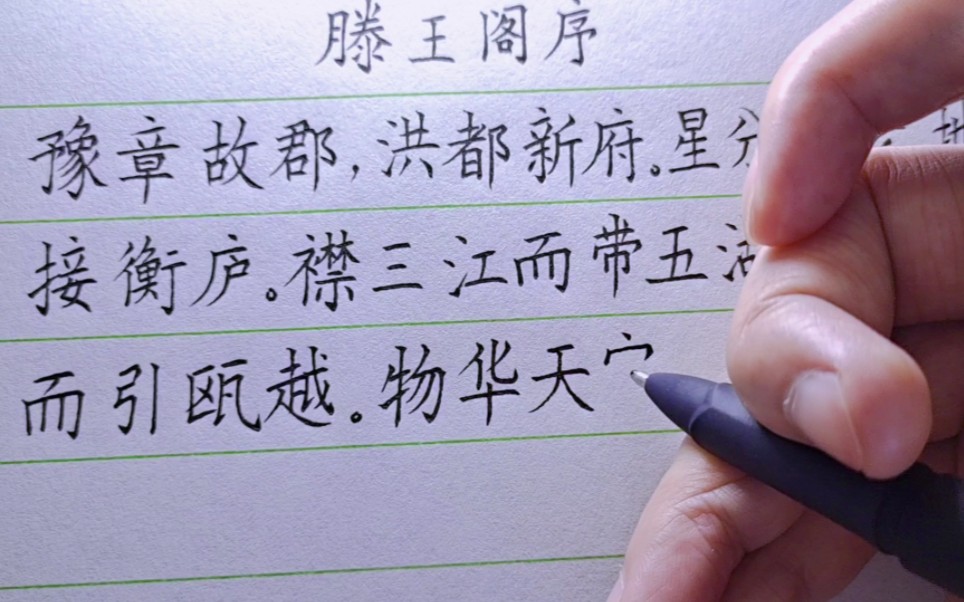 滕王阁序
豫章故郡,洪都新府。星分
接衡庐。襟三江而带五湖
而引瓯越。物华天宀